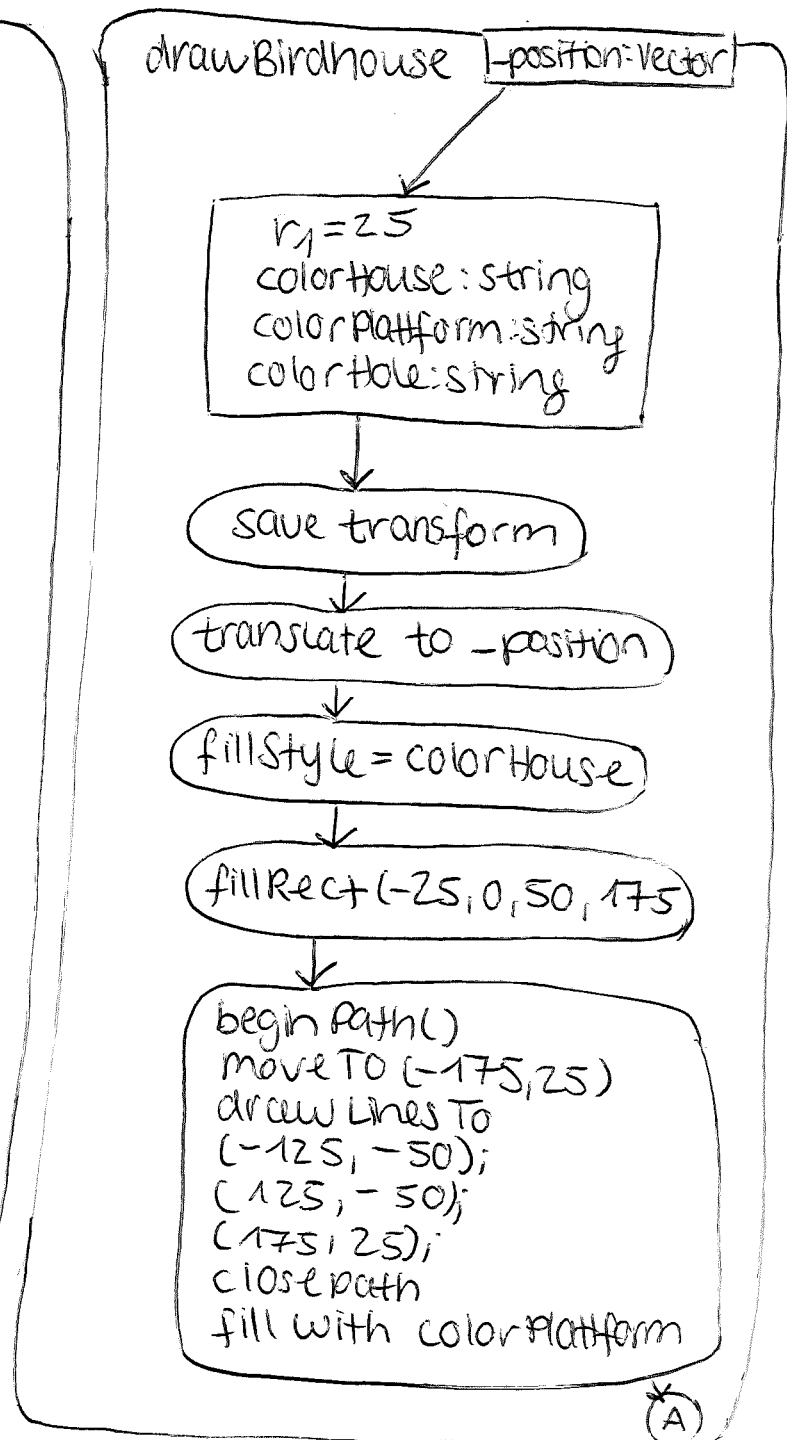 drawBirdhouse _position:Vector
r1=25
colorHouse:string
colorPlattform:string
colorHole:string
save transform
translate to _position
fillStyle=colorHouse
fillRect(-25,0,50,175
beginPath()
moveTO (-175,25)
draw Lines To
(-125,-50);
(125,-50);
(175,25);
closepath
fill with colorPlattform
A